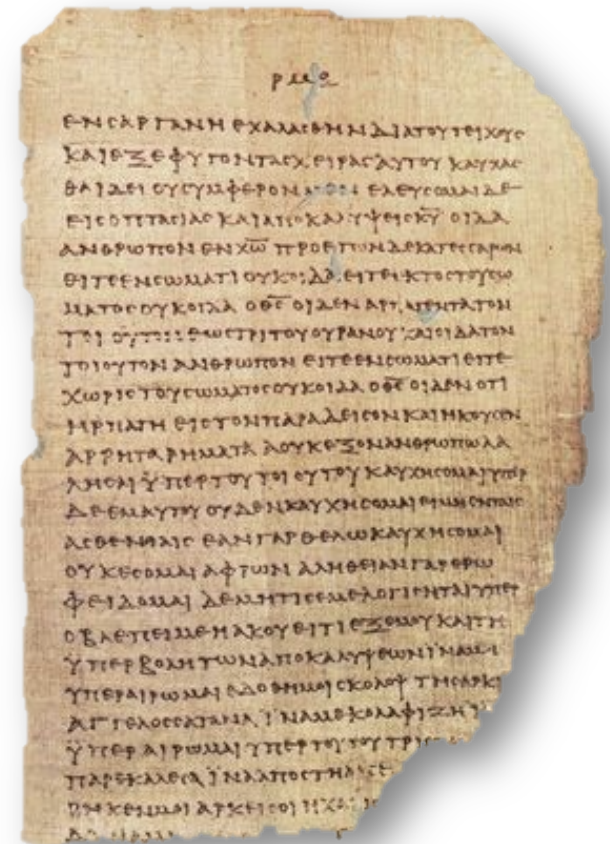 ΕΝϹΑΡΓΑΝΗ ΕΧΑΛΑϹΘΗΝ ΔΙΑΤΟΥΤΕΙΧΟΥϹ
ΚΑΙΕΞΕΦΥΓΟΝΤΑϹΧΕΙΡΑϹΑΥΤΟΥ ΚΑΥΧΑϹ
ΘΑΙΔΕΙ ΟΥϹΥΜΦΕΡΟΝ ΜΕΝ ΕΛΕΥϹΟΜΑΙΔΕ
ΕΙϹΟΠΤΑϹΙΑϹ ΚΑΙΑΠΟΚΑΛΥΨΕΙϹΚ̅Υ̅ ΟΙΔΑ
ΑΝΘΡΩΠΟΝΕΝΧ̅Ω̅ ΠΡΟΕΤΩΝΔΕΚΑΤΕϹϹΑΡΩΝ
ΕΙΤΕΕΝϹΩΜΑΤΙΟΥΚΟΙΔΑΕΙΤΕΕΚΤΟϹΤΟΥϹΩ
ΜΑΤΟϹΟΥΚΟΙΔΑ ΟΘ̅Ϲ̅ ΟΙΔΕΝ ΑΡΠΑΓΕΝΤΑΤΟΝ
ΤΟΙΟΥΤΟΝΕΩϹΤΡΙΤΟΥΟΥΡΑΝΟΥ ΚΑΙΟΙΔΑΤΟΝ
ΤΟΙΟΥΤΟΝ ΑΝΘΡΩΠΟΝ ΕΙΤΕΕΝϹΩΜΑΤΙΕΙΤΕ
ΧΩΡΙϹ ΤΟΥϹΩΜΑΤΟϹΟΥΚΟΙΔΑ ΟΘ̅Ϲ̅ ΟΙΔΕΝ ΟΤΙ
ΗΡΠΑΓΗ ΕΙϹΤΟΝΠΑΡΑΔΕΙϹΟΝ ΚΑΙΗΚΟΥϹΕΝ
ΑΡΡΗΤΑΡΗΜΑΤΑ ΑΟΥΚΕΞΟΝΑΝΘΡΩΠΩΛΑ
ΛΗϹΑΙ ΫΠΕΡΤΟΥΤΟΙΟΥΤΟΥ ΚΑΥΧΗϹΟΜΑΙΥΠΕΡ
ΔΕΕΜΑΥΤΟΥ ΟΥΔΕΝΚΑΥΧΗϹΟΜΑΙΕΙΜΗΕΝΤΑΙϹ
ΑϹΘΕΝΕΙΑΙϹ ΕΑΝΓΑΡΘΕΛΩΚΑΥΧΗϹΟΜΑΙ
ΟΥΚΕϹΟΜΑΙ ΑΦΡΩΝ ΑΛΗΘΕΙΑΝΓΑΡΕΡΩ
ΦΕΙΔΟΜΑΙ ΔΕΜΗΤΙϹΕΜΕΛΟΓΙϹΗΤΑΙΥΠΕΡ
ΟΒΛΕΠΕΙΜΕΗΑΚΟΥΕΙΤΙΕΞΕΜΟΥΚΑΙΤΗ
ΫΠΕΡΒΟΛΗΤΩΝΑΠΟΚΑΛΥΨΕΩΝΙΝΑΜΗ
ΥΠΕΡΑΙΡΩΜΑΙ ΕΔΟΘΗΜΟΙϹΚΟΛΟΨ ΤΗϹΑΡΚΙ
ΑΓΓΕΛΟϹϹΑΤΑΝΑ ΪΝΑΜΕΚΟΛΑΦΙΖΗΙ
ΫΠΕΡΑΙΡΩΜΑΙ ΥΠΕΡΤΟΥΤΟΥΤΡΙϹ
ΠΑΡΕΚΑΛΕϹΑ ΪΝΑΑΠΟϹΤΗ
ΡΗΚΕΝΜΟΙ ΑΡΚΕΙϹΟΙΗΧΑΡΙϹ